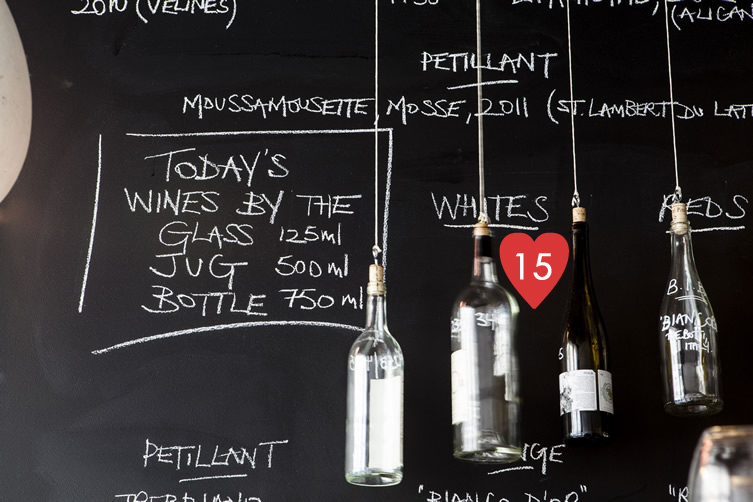 2010 (VELINES)
(ALIGAN
PETILLANT
MOUSSAMOUSETTE, MOSSE, 2011 (ST. LAMBERT DU LATT
TODAY'S
WINES BY THE
GLASS 125ml
JUG 500ml
BOTTLE 750ml
WHITES
REDS
15
"BIANCO
PETILLANT
"BIANCO D'OR"